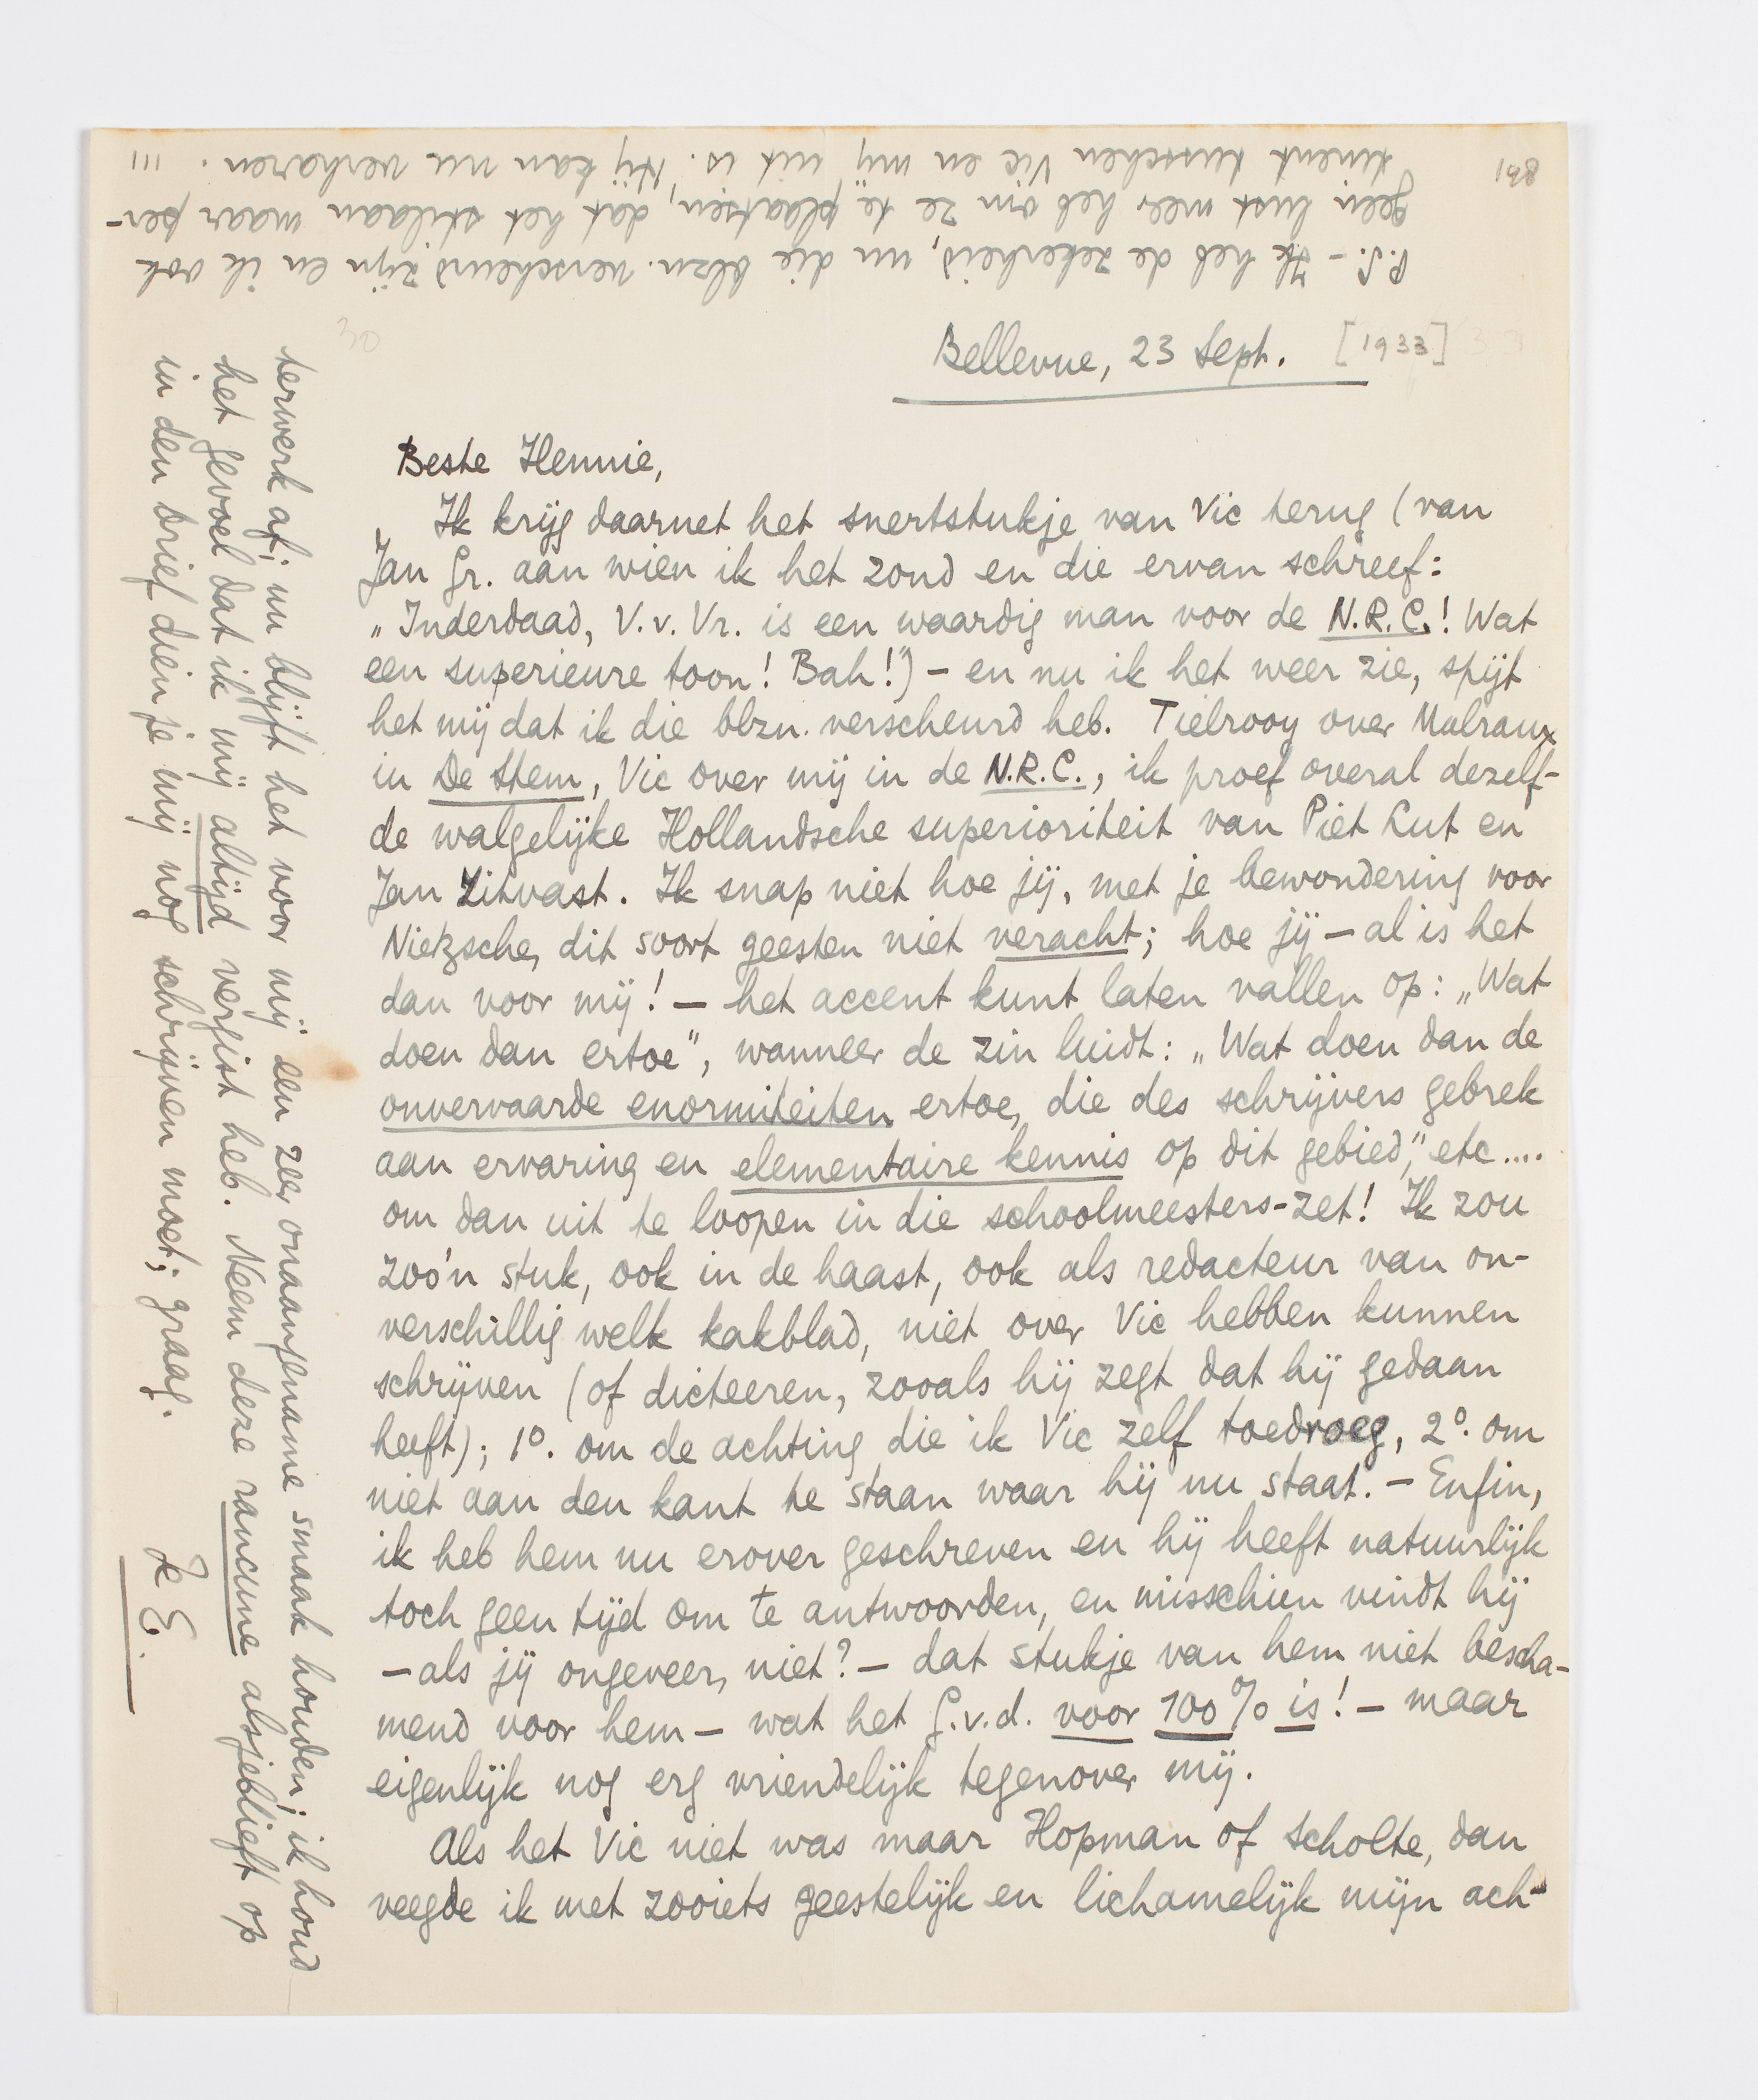 198
Bellevue, 23 Sept. [1933]
30
Beste Hennie,
Ik krijg daarnet het snertstukje van Vic terug (van
Jan Gr. aan wien ik het zond en die ervan schreef:
„Inderdaad, V.v.Vr. is een waardig man voor de N.R.C.! Wat
een superieure toon! Bah!") – en nu ik het weer zie, spijt
het mij dat ik die blzn. verscheurd heb. Tielrooy over Malraux
in De Stem, Vic over mij in de N.R.C., ik proef overal dezelf-
de walgelijke Hollandsche superioriteit van Piet Lut en
Jan Zitvast. Ik snap niet hoe jij, met je bewondering voor
Nietzsche, dit soort geesten niet veracht; hoe jij – al is het
dan voor mij! – het accent kunt laten vallen op: „Wat
doen dan ertoe", wanneer de zin luidt: „Wat doen dan de
onvervaarde enormiteiten ertoe, die des schrijvers gebrek
aan ervaring en elementaire kennis op dit gebied," etc....
om dan uit te loopen in die schoolmeesters-zet! Ik zou
zoo'n stuk, ook in de haast, ook als redacteur van on-
verschillig welk kakblad, niet over Vic hebben kunnen
schrijven (of dicteeren, zooals hij zegt dat hij gedaan
heeft); 1º. om de achting die ik Vic zelf toedroeg, 2º. om
niet aan den kant te staan waar hij nu staat. – Enfin,
ik heb hem nu erover geschreven en hij heeft natuurlijk
toch geen tijd om te antwoorden, en misschien vindt hij
– als jij ongeveer, niet? – dat stukje van hem niet bescha-
mend voor hem – wat het G.v.d. voor 100% is! – maar
eigenlijk nog erg vriendelijk tegenover mij.
Als het Vic niet was maar Hopman of Scholte, dan
veegde ik met zooiets geestelijk en lichamelijk mijn ach-
terwerk af; nu blijft het voor mij een zeer onaangename smaak houden; ik houd
het gevoel dat ik mij altijd vergist heb. Neem deze rancune alsjeblieft op
in den brief dien je mij nog schrijven moet; graag.
Je E.
P.S. – Ik heb de zekerheid, nu die blzn. verscheurd zijn en ik ook
geen lust meer heb om ze te plaatsen, dat het stilaan maar per-
tinent tusschen Vic en mij uit is. Hij kan nu verharen. !!!